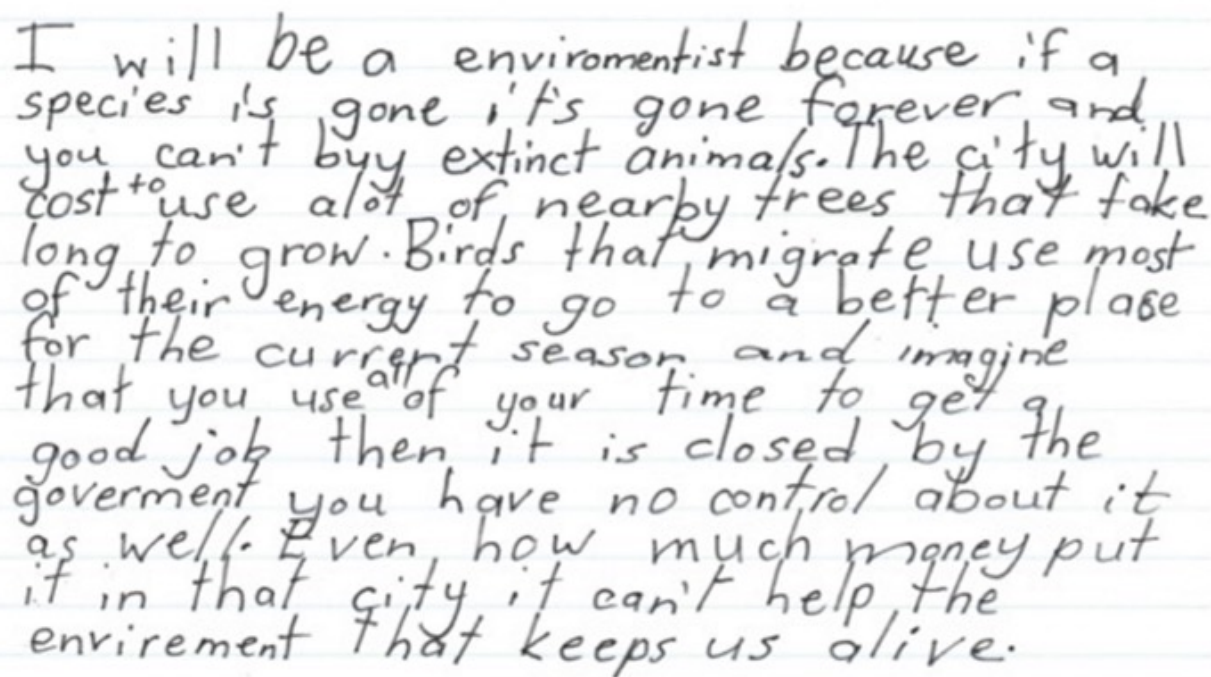 I will be a enviromentist because if a
species is gone it's gone forever and
you can't buy extinct animals. The city will
cost to use alot of nearby trees that take
long to grow. Birds that migrate use most
of their energy to go to a better place
for the current season and imagine
that you use all of your time to get a
good job then it is closed by the
goverment you have no control about it
as well. Even how much money put
it in that city it can't help the
envirement that keeps us alive.